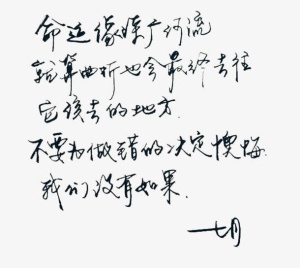 命运像条广河流
就算曲折也会最终去往
它该去的地方.
不要为做错的决定懊悔.
我们没有如果.
七月